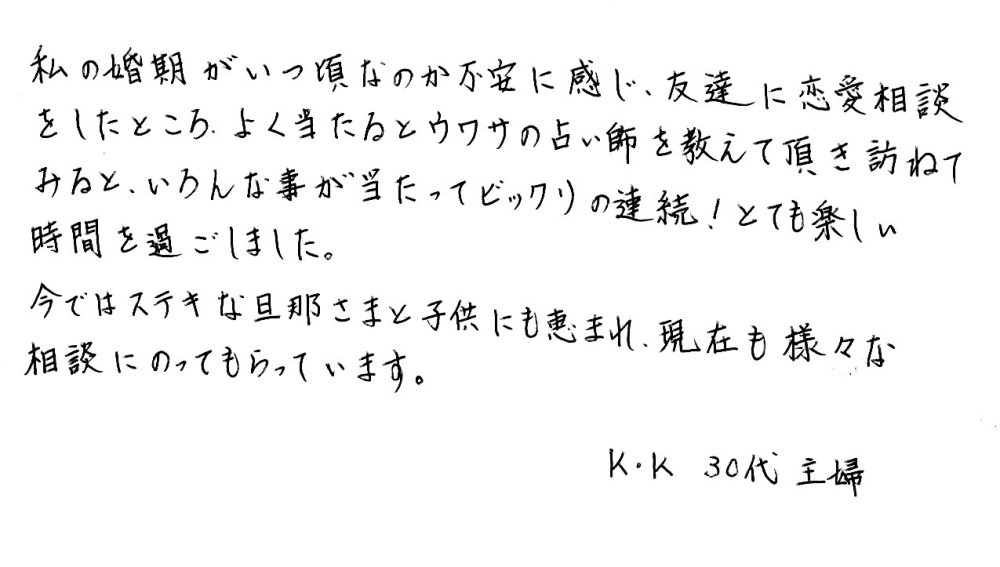 私の婚期がいつ頃なのか不安に感じ、友達に恋愛相談
をしたところ、よく当たるとウワサの占い師を教えて頂き訪ねて
みると、いろんな事が当たってビックリの連続!とても楽しい
時間を過ごしました。
今ではステキな旦那さまと子供にも恵まれ、現在も様々な
相談にのってもらっています。
K・K 30代 主婦